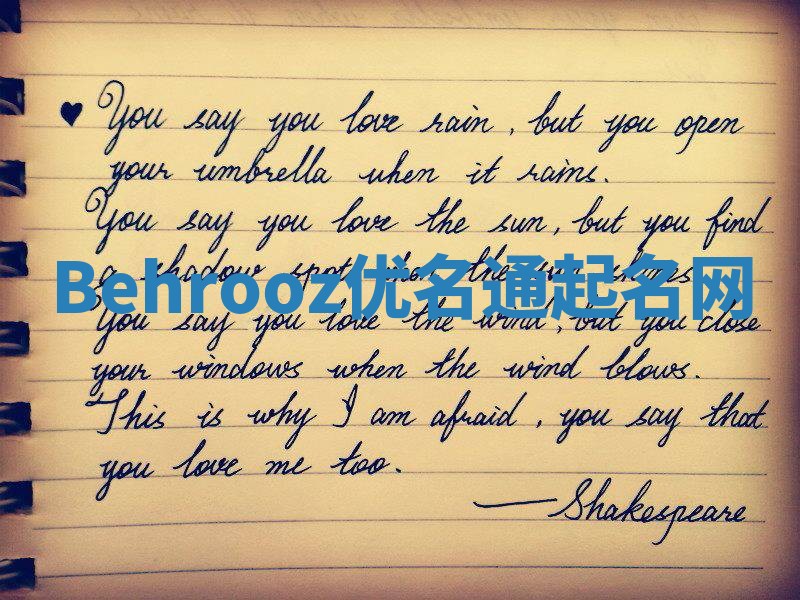 ♥ You say you love rain, but you open
your umbrella when it rains.
You say you love the sun, but you find
a shadow spot when the sun shines.
Behrooz优名通起名网
You say you love the wind, but you close
your windows when the wind blows.
This is why I am afraid, you say that
you love me too.
—Shakespeare